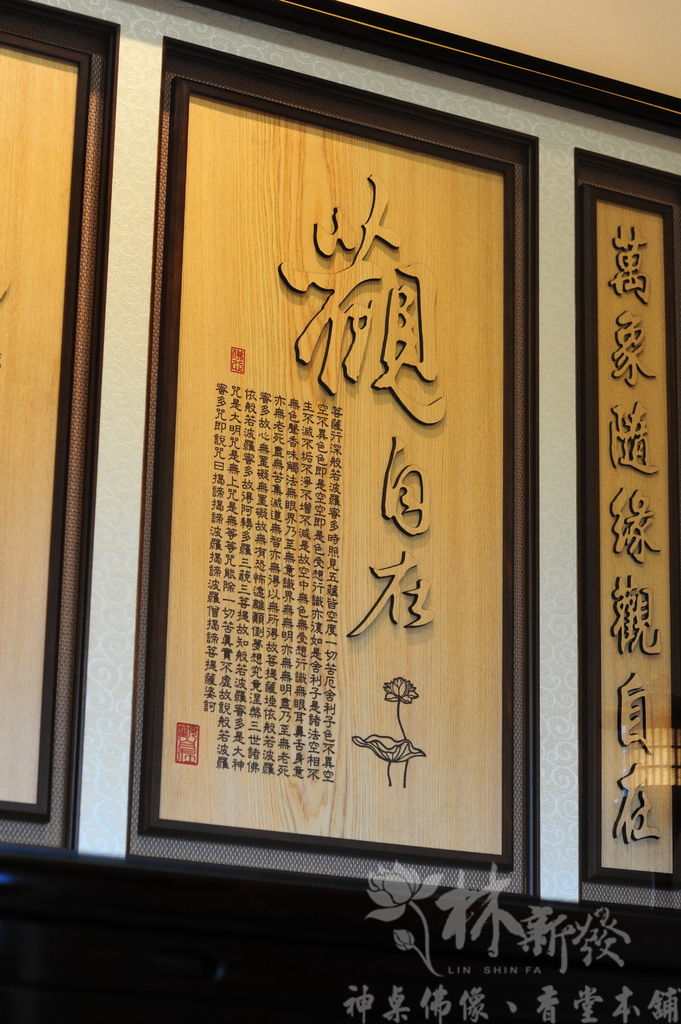 萬象隨緣觀自在
觀自在
菩薩行深般若波羅蜜多時照見五蘊皆空度一切苦厄舍利子色不異空
空不異色色即是空空即是色受想行識亦復如是舍利子是諸法空相不
生不滅不垢不淨不增不減是故空中無色無受想行識無眼耳鼻舌身意
無色聲香味觸法無眼界乃至無意識界無無明亦無無明盡乃至無老死
亦無老死盡無苦集滅道無智亦無得以無所得故菩提薩埵依般若波羅
蜜多故心無罣礙無罣礙故無有恐怖遠離顛倒夢想究竟涅槃三世諸佛
依般若波羅蜜多故得阿耨多羅三藐三菩提故知般若波羅蜜多是大神
咒是大明咒是無上咒是無等等咒能除一切苦眞實不虛故說般若波羅
蜜多咒即說咒曰揭諦揭諦波羅揭諦波羅僧揭諦菩提薩婆訶
林新發
LIN SHIN FA
神桌佛像、香堂本舖